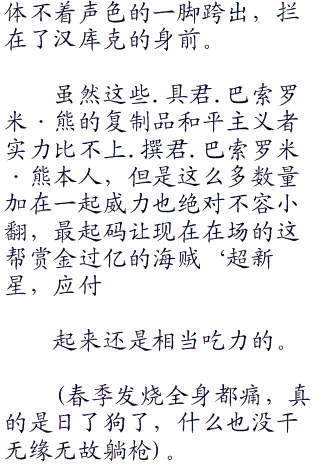 体不着声色的一脚跨出，拦
在了汉库克的身前。
虽然这些.具君.巴索罗
米·熊的复制品和平主义者
实力比不上.撰君.巴索罗米
·熊本人，但是这么多数量
加在一起威力也绝对不容小
翻，最起码让现在在场的这
帮赏金过亿的海贼‘超新
星，应付
起来还是相当吃力的。
(春季发烧全身都痛，真
的是日了狗了，什么也没干
无缘无故躺枪)。